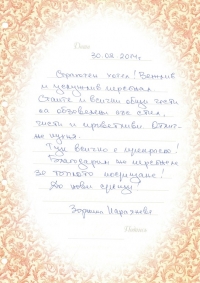 30.08.2014г.
Страхотен хотел! Вежлив
и услужлив персонал.
Стаите и всички общи части
са обзаведени със стил,
чисти и приветливи. Отлич-
на кухня.
Тук всичко е прекрасно!
Благодарим на персонала
за топлото посрещане!
До нови срещи!